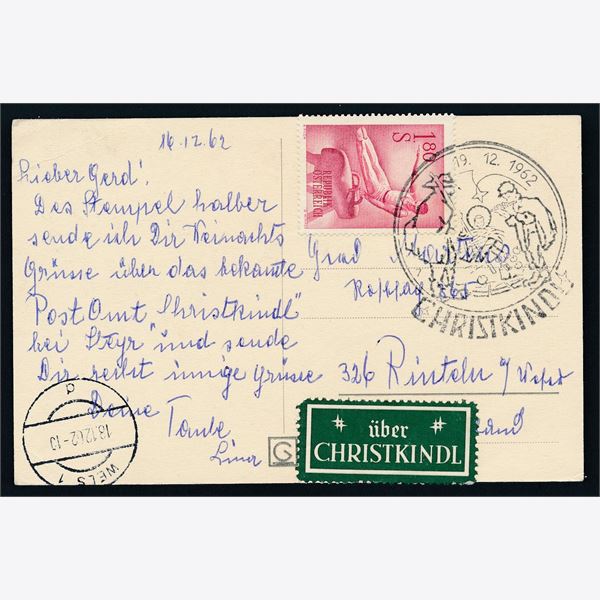 16.12.62
Lieber Gerd!
Des Stempel halber
sende ich Dir Weinachts
Grüsse über das bekannte
Post Amt Christkindl"
bei Steyr" und sende
Dir recht innige Grüsse
Deine Tante
Lina
1.80
S
REPUBLIK
ÖSTERREICH
19. 12. 1962
CHRISTKINDL
Gerd
326 Rinteln a/ Weser
über
CHRISTKINDL
G
18.12.62-10
WELS 1